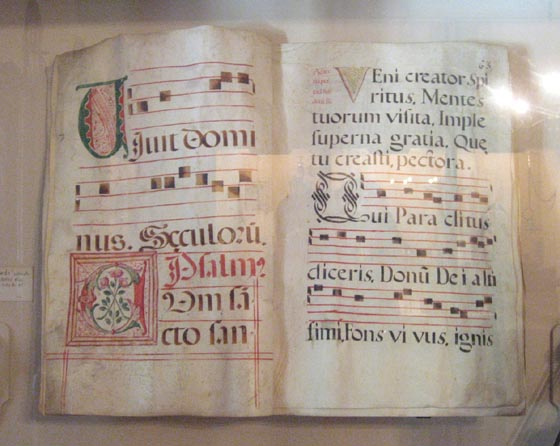 Viuit domi
nus. Sęculorũ.
Psalm9
Dm sã
cto san
68
VEni creator spi
ritus, Mentes
tuorum visita, Imple
superna gratia, Quę
tu creasti, pectora.
Qui Para clitus
diceris, Donũ Dei alti
simi, fons vi vus, ignis